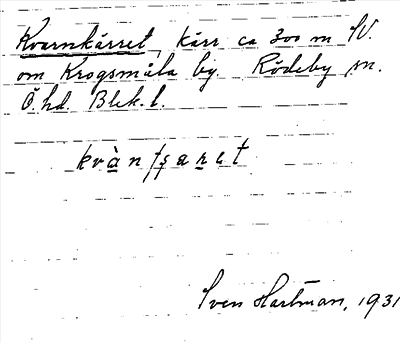 Kvarnkärret, kärr ca 300 m SV.
om Krogsmåla by. Rödeby sn.
Ö. hd. Blek. l.
Sven Hartman, 1931